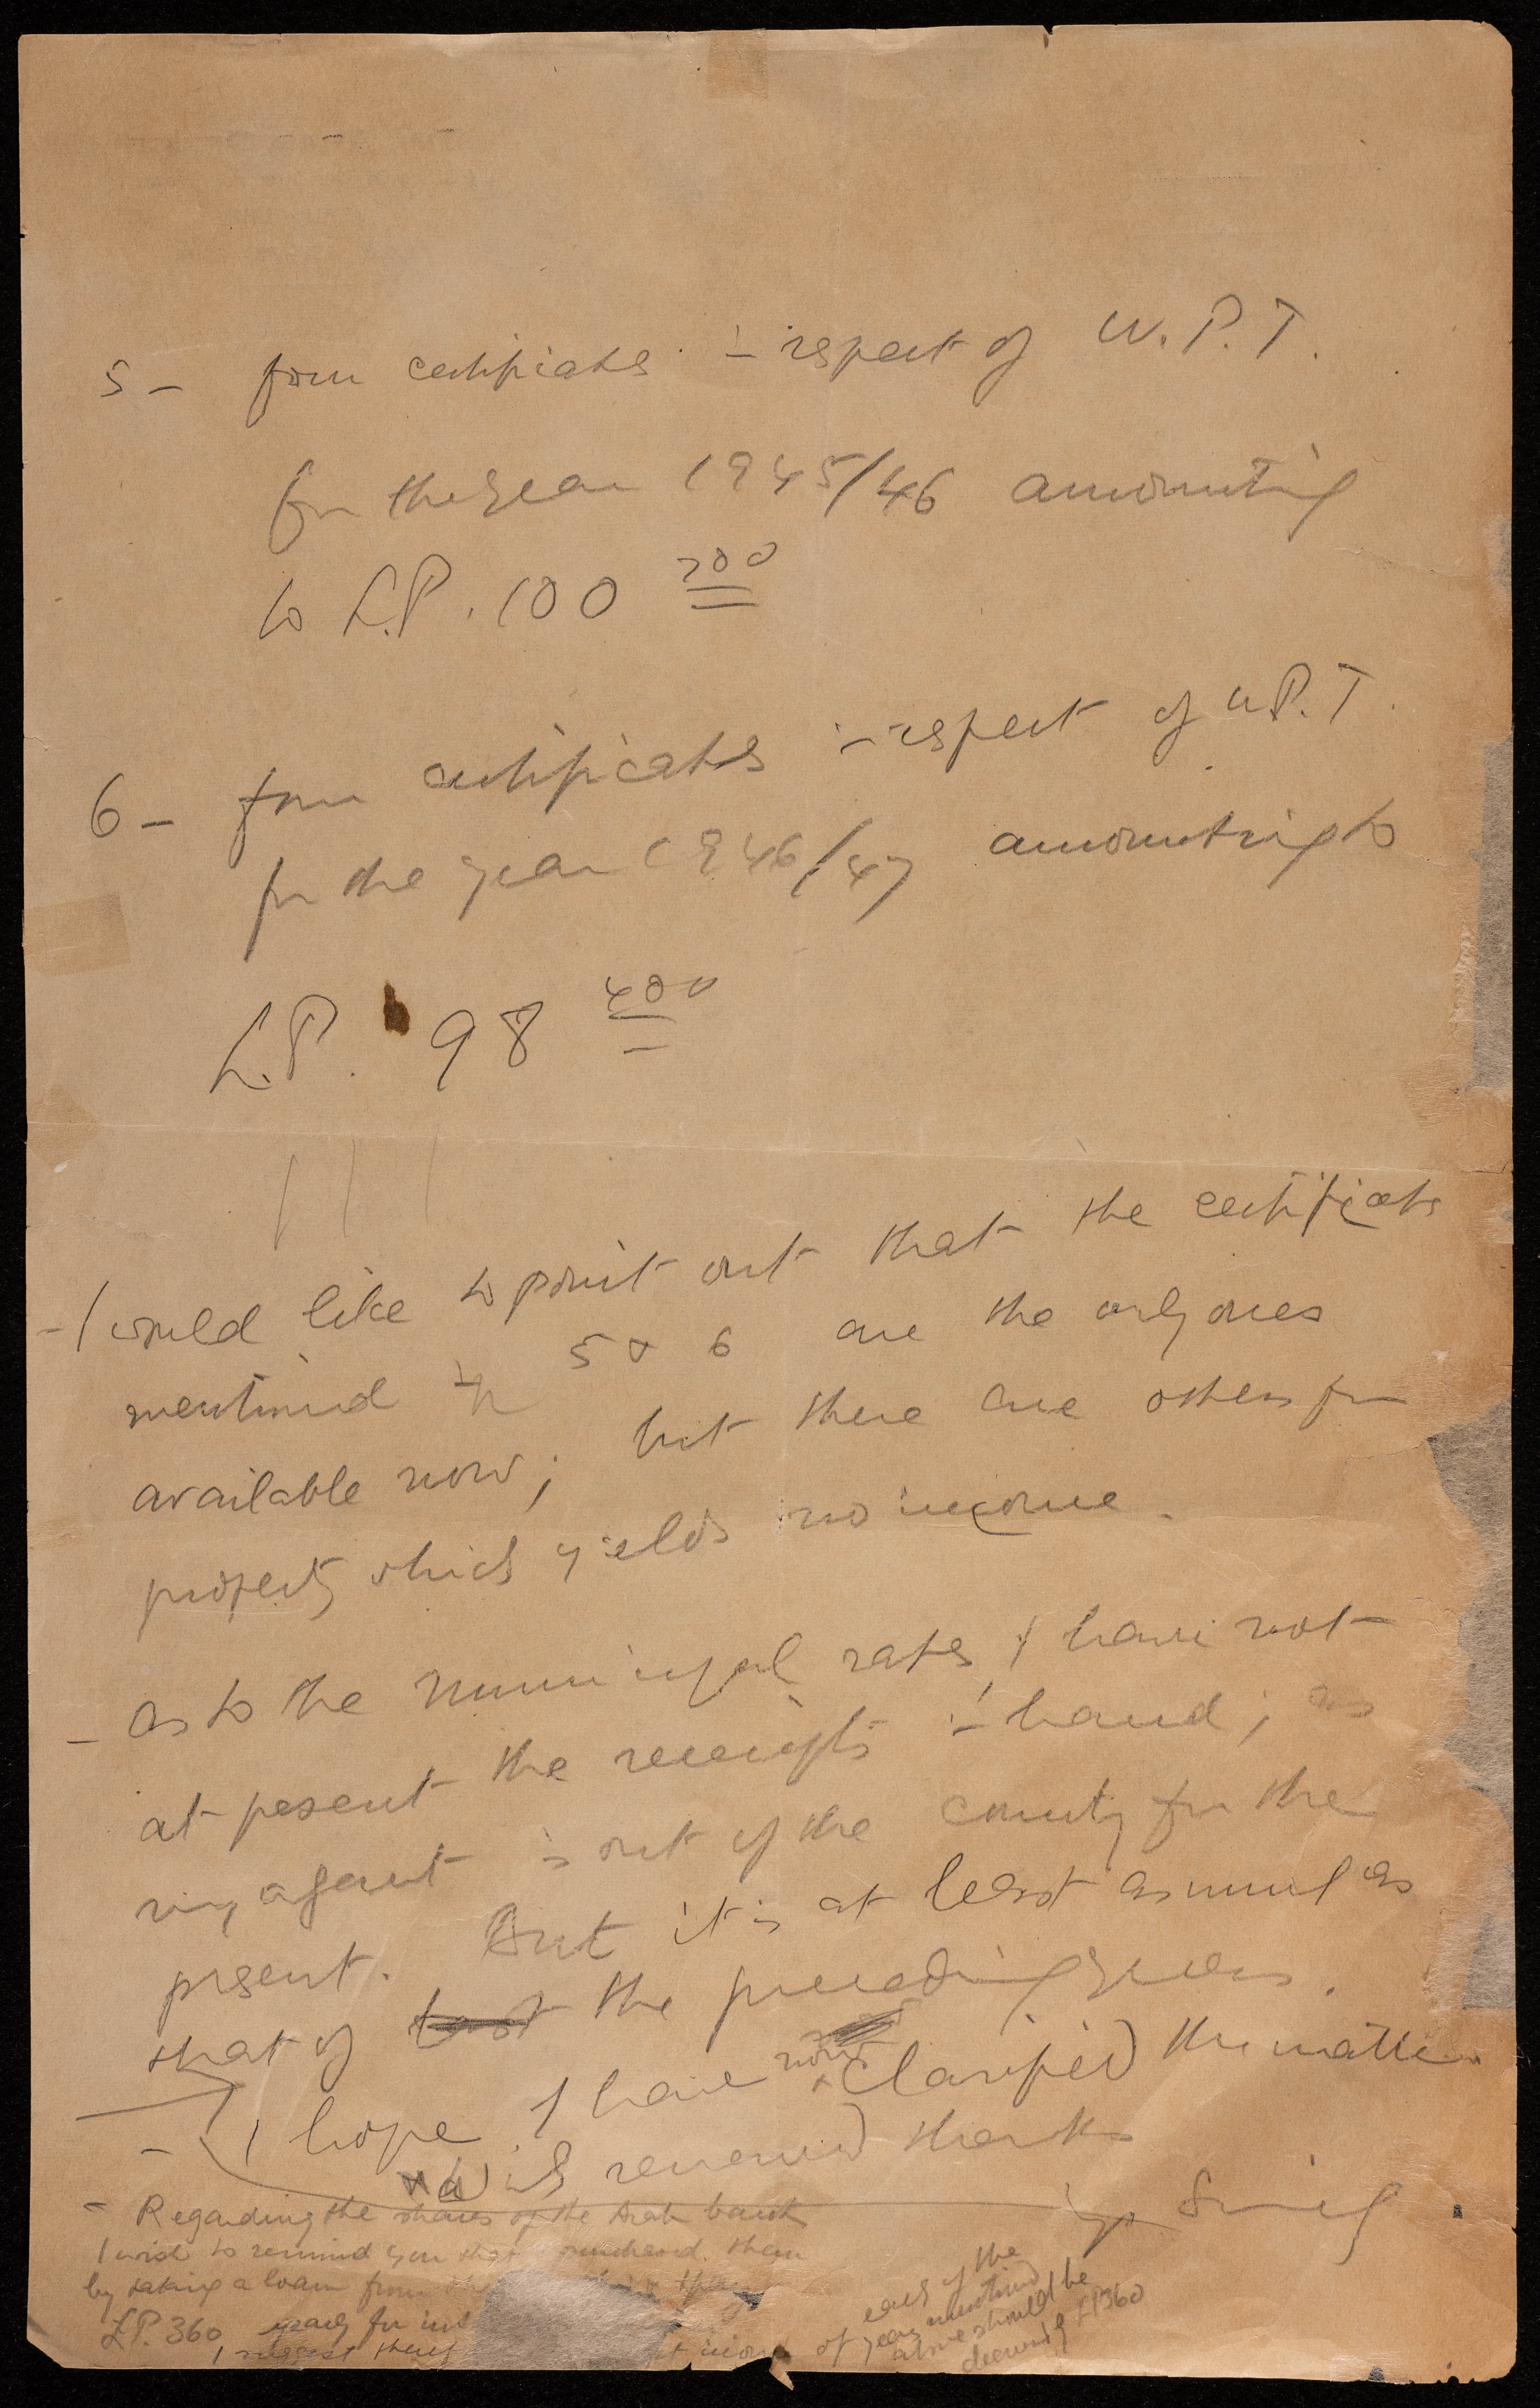 5 - four certificates in respect of W.P.T.
for the year 1945/46 amounting
to L.P. 100 200
6 - four certificates in respect of U.P.T.
for the year 1946/47 amounting to
L.P. 98 400
- I would like to point out that the certificates
mentioned in 5 & 6 are the only ones
available now; but there are others for
property which yields no income.
- as to the municipal rates I have not
at present the receipts in hand; as
my agent is out of the country for the
present. But it is at least as much as
that of last the preceding years.
- I hope I have now clarified the matter
with renewed thanks
yrs Sincerely
- Regarding the shares of the Arab bank
I wish to remind you that I purchased them
by taking a loan from the
L.P. 360 yearly for
I suggest
of
each of the
years mentioned
above should be
decreased by LP360